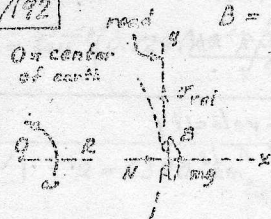 /192
road
B =
y
O = center
of earth
v rel
O
R
B
x
N
A
mg
ω